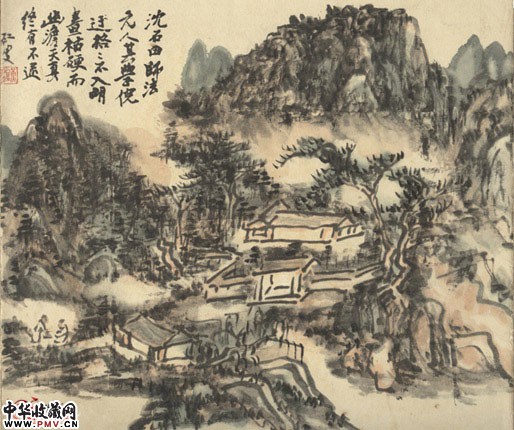 沈石田師法
元人其學倪
迂格〻不入明
畫枯硬而
幽澹天真
終有不逮
虹叟
中华收藏网
WWW.PMV.CN